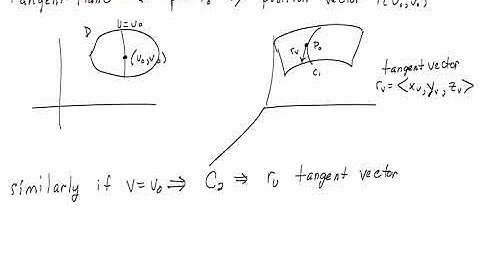 tangent plane position vector r(u₀,v₀)
u=u₀
D
(u₀,v₀)
r_v P₀
C₁
tangent vector
r_v = <x_v, y_v, z_v>
similarly if v=v₀ ⇒ C₂ ⇒ r_u tangent vector